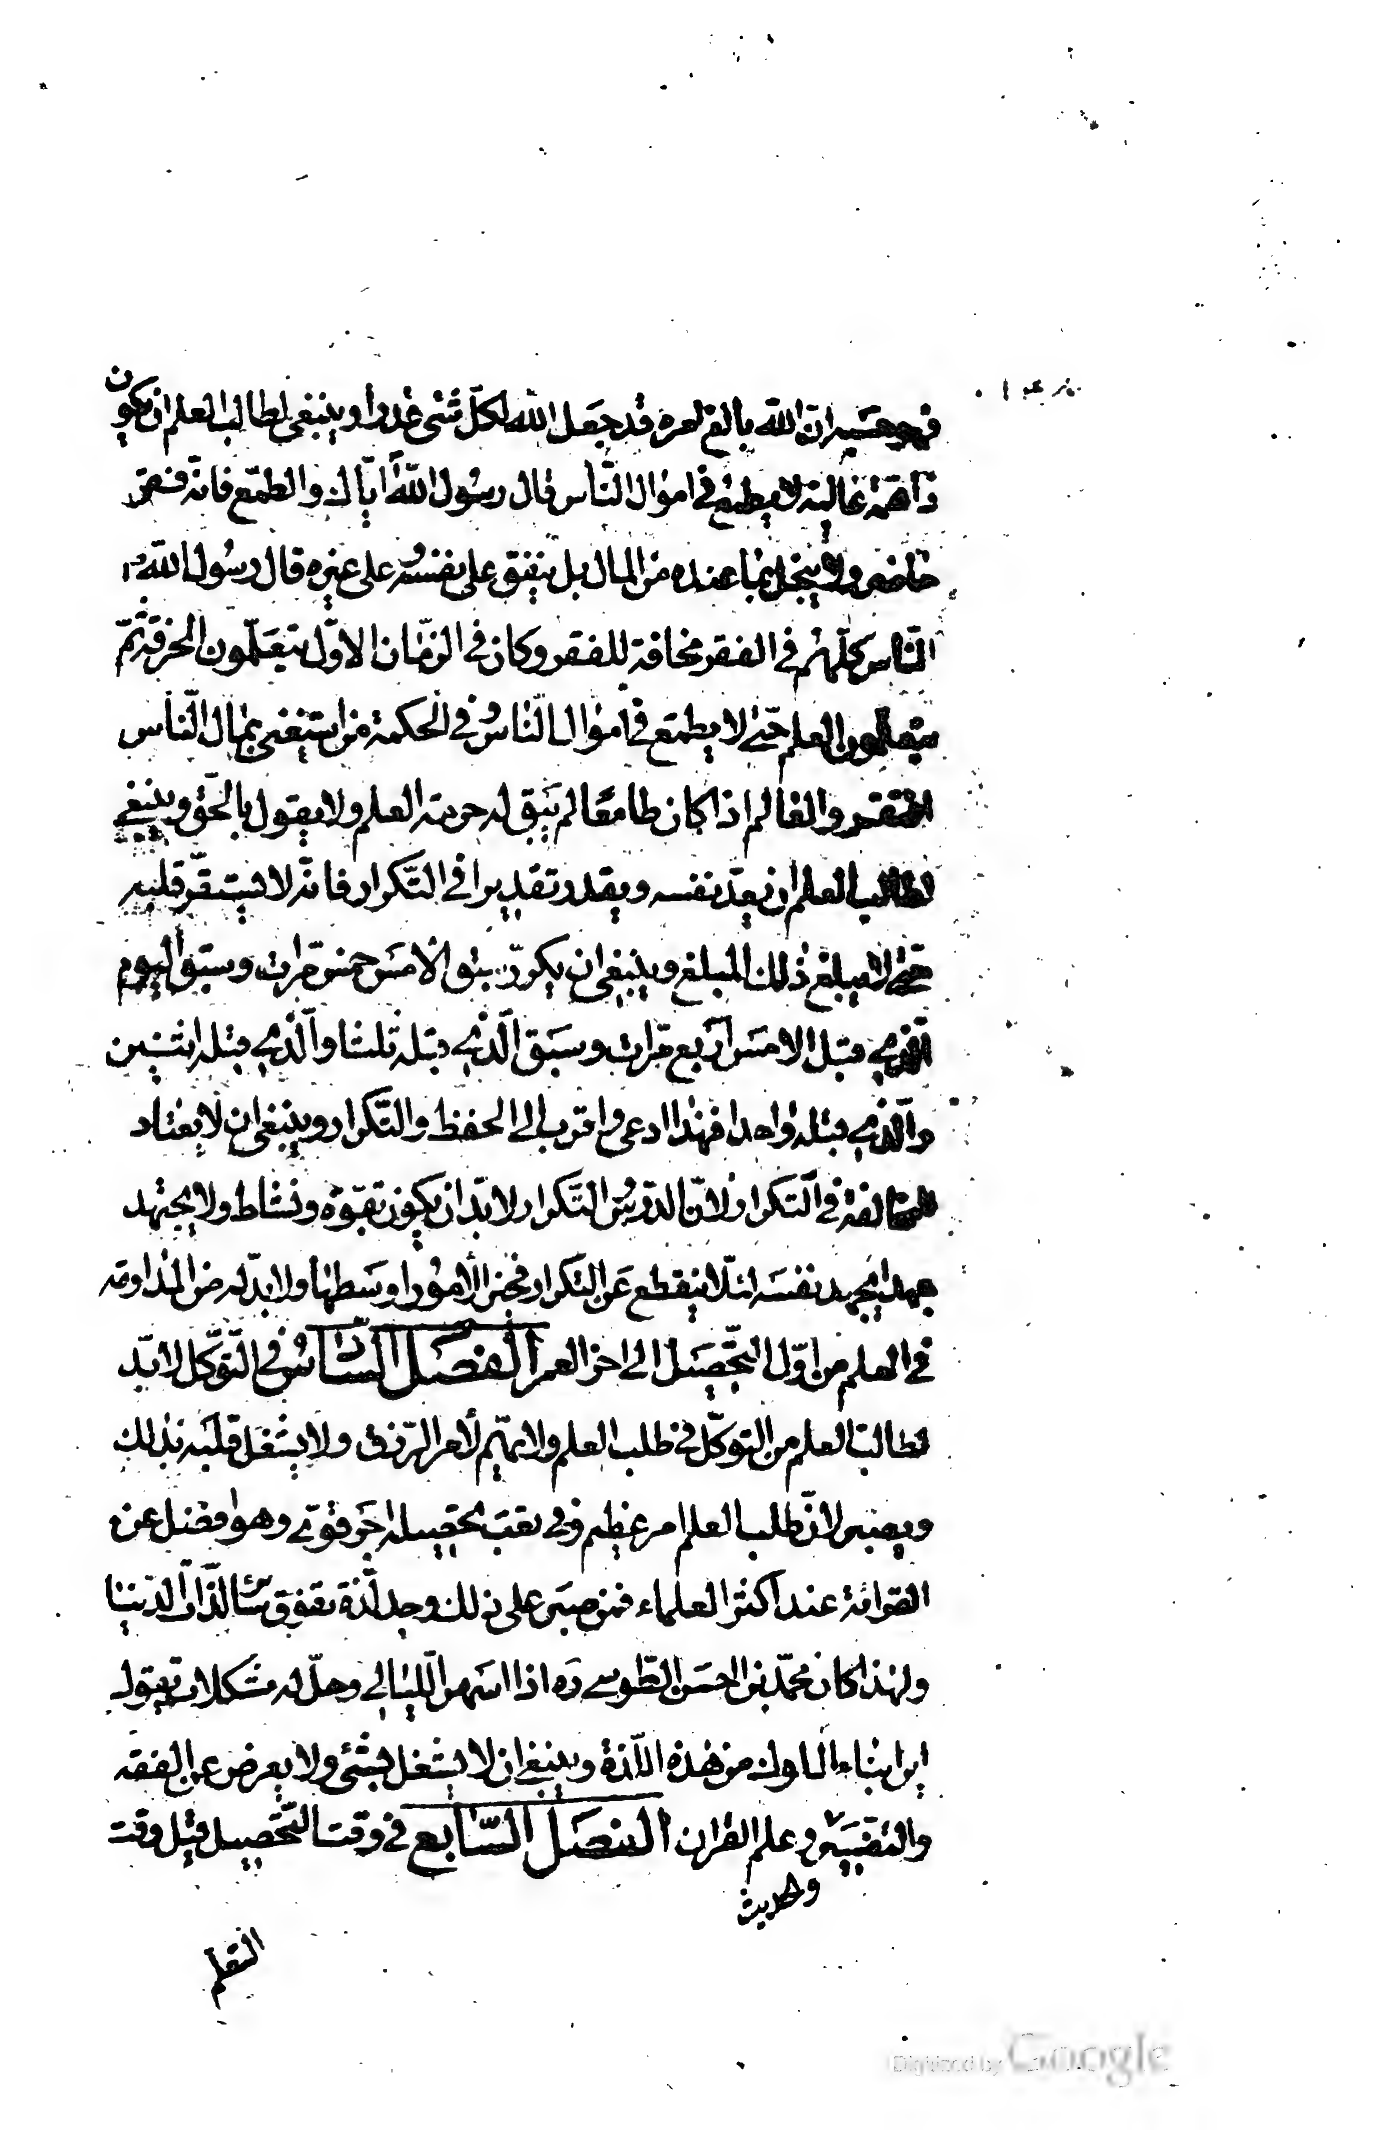 فهو حسبه ان الله بالغ امره قد جعل الله لكل شئ قدرا وينبغي لطالب العلم ان يكون
ذا همة عالية لا يطمع في اموال الناس قال رسول الله اياك والطمع فانه فقر
حاضر ولا يبخل بما عنده من المال بل ينفق على نفسه وعلى غيره قال رسول الله
الناس كلهم في الفقر مخافة للفقر وكان في الزمان الاول يتعلمون الحرفة ثم
يتعلمون العلم حتى لا يطمع في اموال الناس وفي الحكمة من استغنى بمال الناس
افتقر والعالم اذا كان طامعا لم يبق له حرمة العلم ولا يقول بالحق وينبغي
لطالب العلم ان يعد نفسه ويقدر تقديرا في التكرار فانه لا يستقر قلبه
حتى لا يبلغ ذلك المبلغ وينبغي ان يكرر سبق الامس خمس مرات وسبق اليوم
الذي قبل الامس اربع مرات وسبق الذي قبله ثلثا والذي قبله اثنين
والذي قبله واحدا فهذا ادعى واقرب الى الحفظ والتكرار وينبغي ان لا يعتاد
المخافة في التكرار لان الدرس والتكرار لا بد ان يكون بقوة ونشاط ولا يجتهد
جهدا يجهد نفسه لئلا ينقطع عن التكرار فخير الامور اوسطها ولا بد له من المداومة
في العلم من اول التحصيل الى اخر العمر الفصل السادس في التوكل لا بد
لطالب العلم من التوكل في طلب العلم ولا يهتم لامر الرزق ولا يشغل قلبه بذلك
ويصبر لان طلب العلم امر عظيم وفي تعب تحصيله اجر قوي وهو افضل من
القرائة عند اكثر العلماء فمن صبر على ذلك وجد لذة تفوق سائر لذات الدنيا
ولهذا كان محمد بن الحسن الطوسي ره اذا اسهر الليالي وحل له مشكلات يقول
اين ابناء الملوك من هذه اللذة وينبغي ان لا يشغل بشئ ولا يعرض عن الفقه
والتفسير وعلم القران الفصل السابع في وقت التحصيل قيل وقت
والحديث
التعلم
Digitized by Google